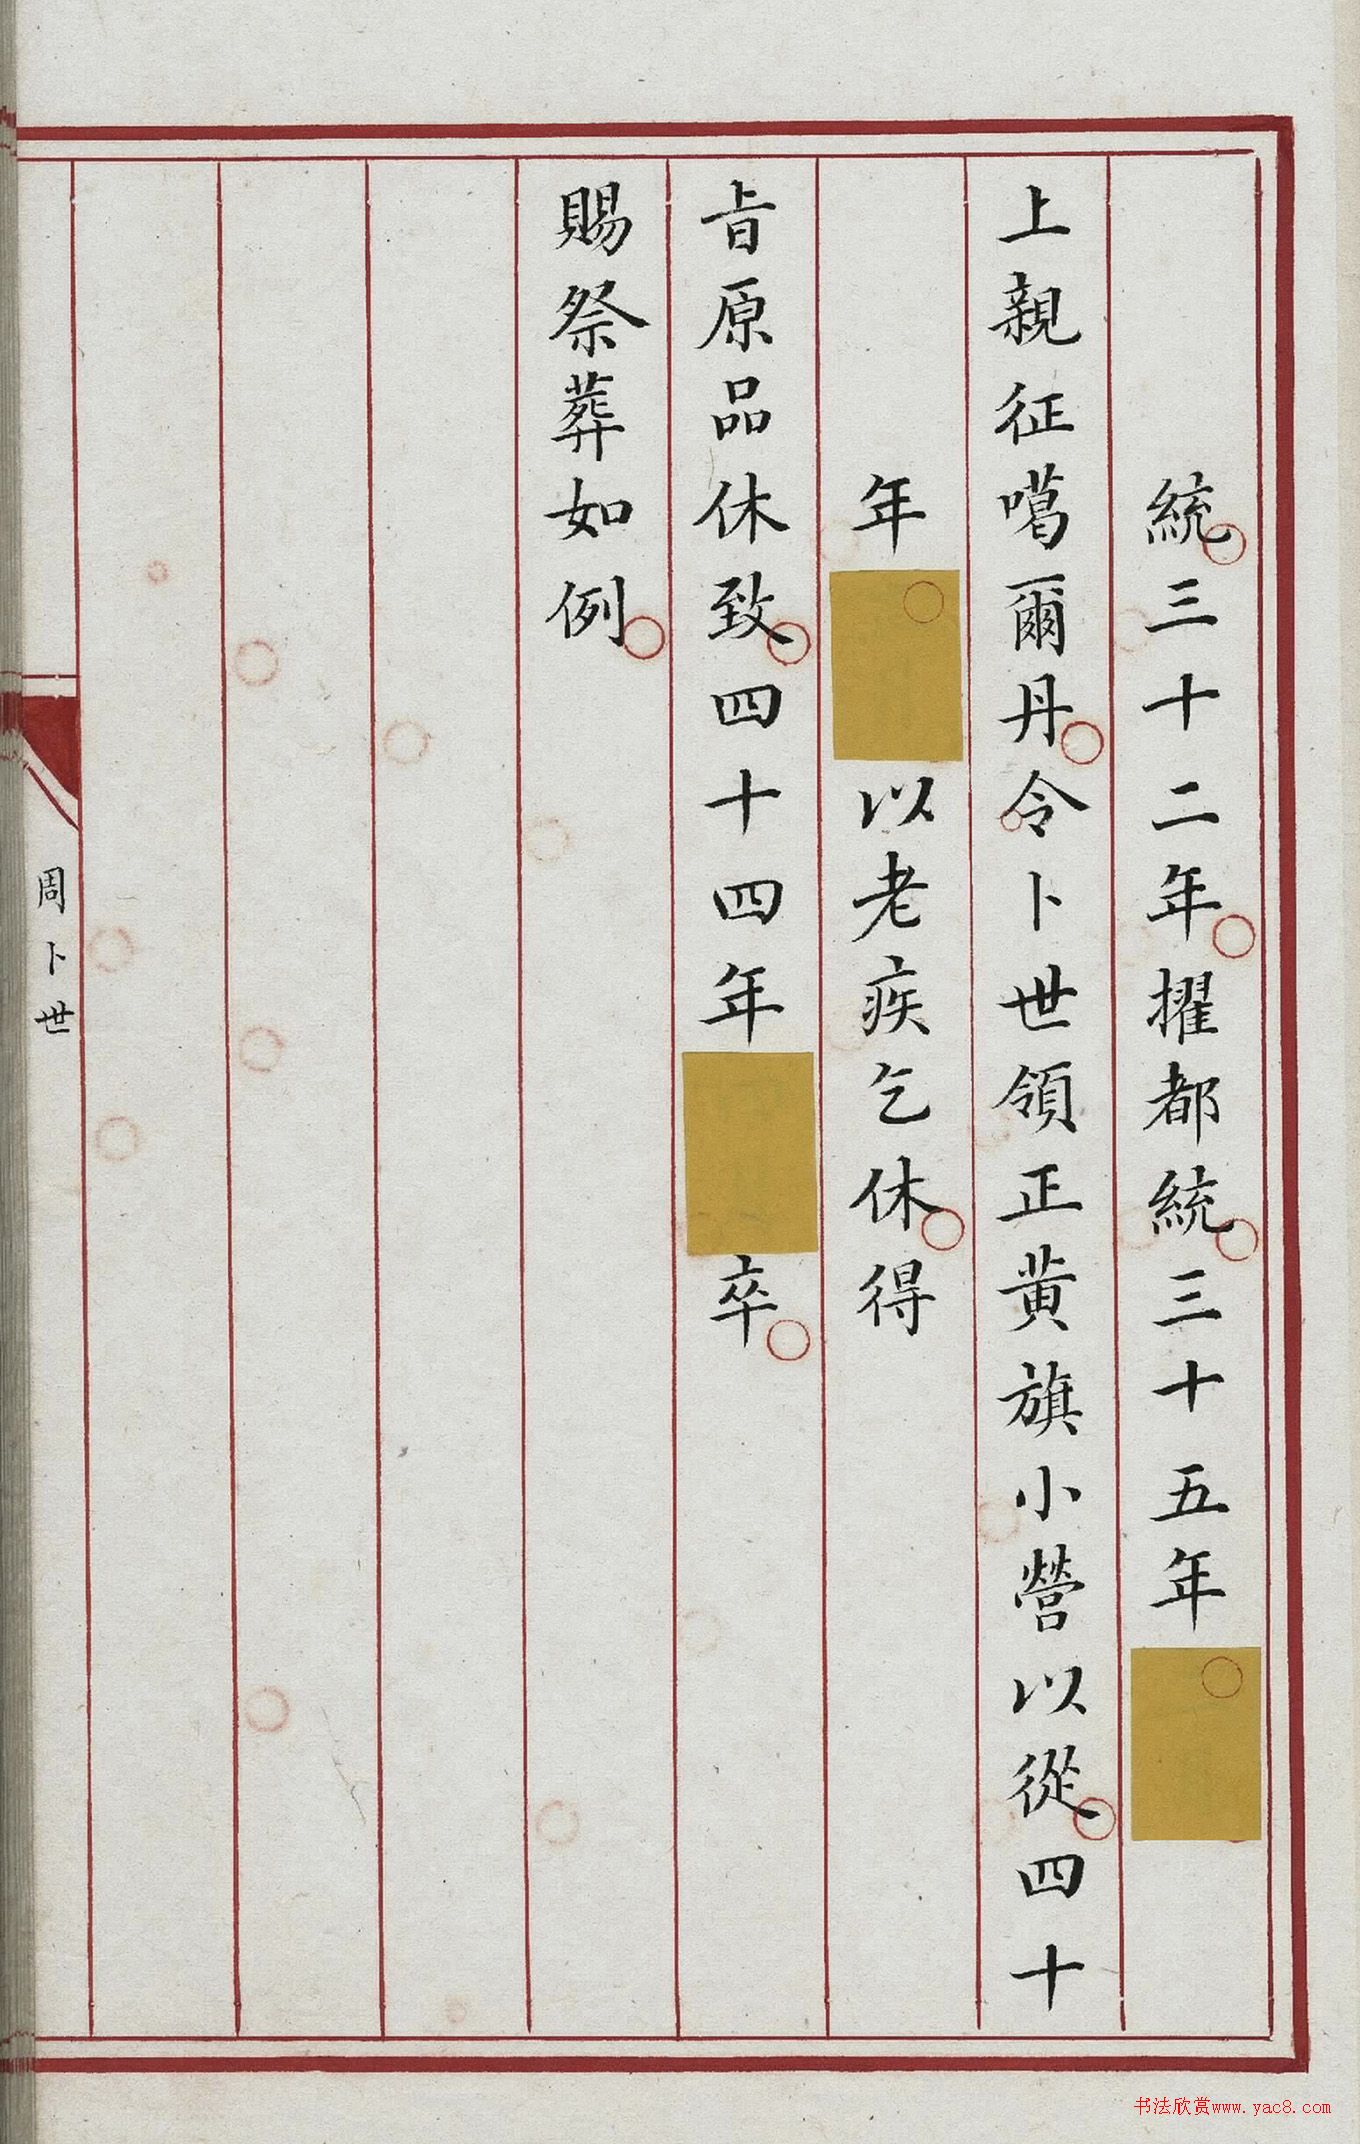 統三十二年擢都統三十五年
上親征噶爾丹令卜世領正黄旗小營以從四十
年以老疾乞休得
旨原品休致四十四年卒
賜祭葬如例
周卜世
书法欣赏www.yac8.com